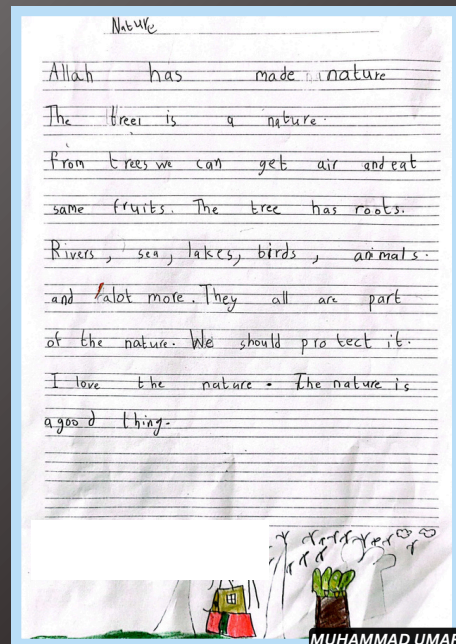 Nature
Allah has made nature
The treei is a nature.
from trees we can get air and eat
same fruits. The tree has roots.
Rivers, sea, lakes, birds, animals.
and alot more. They all are part
of the nature. We should protect it.
I love the nature. The nature is
a good thing.
MUHAMMAD UMAR